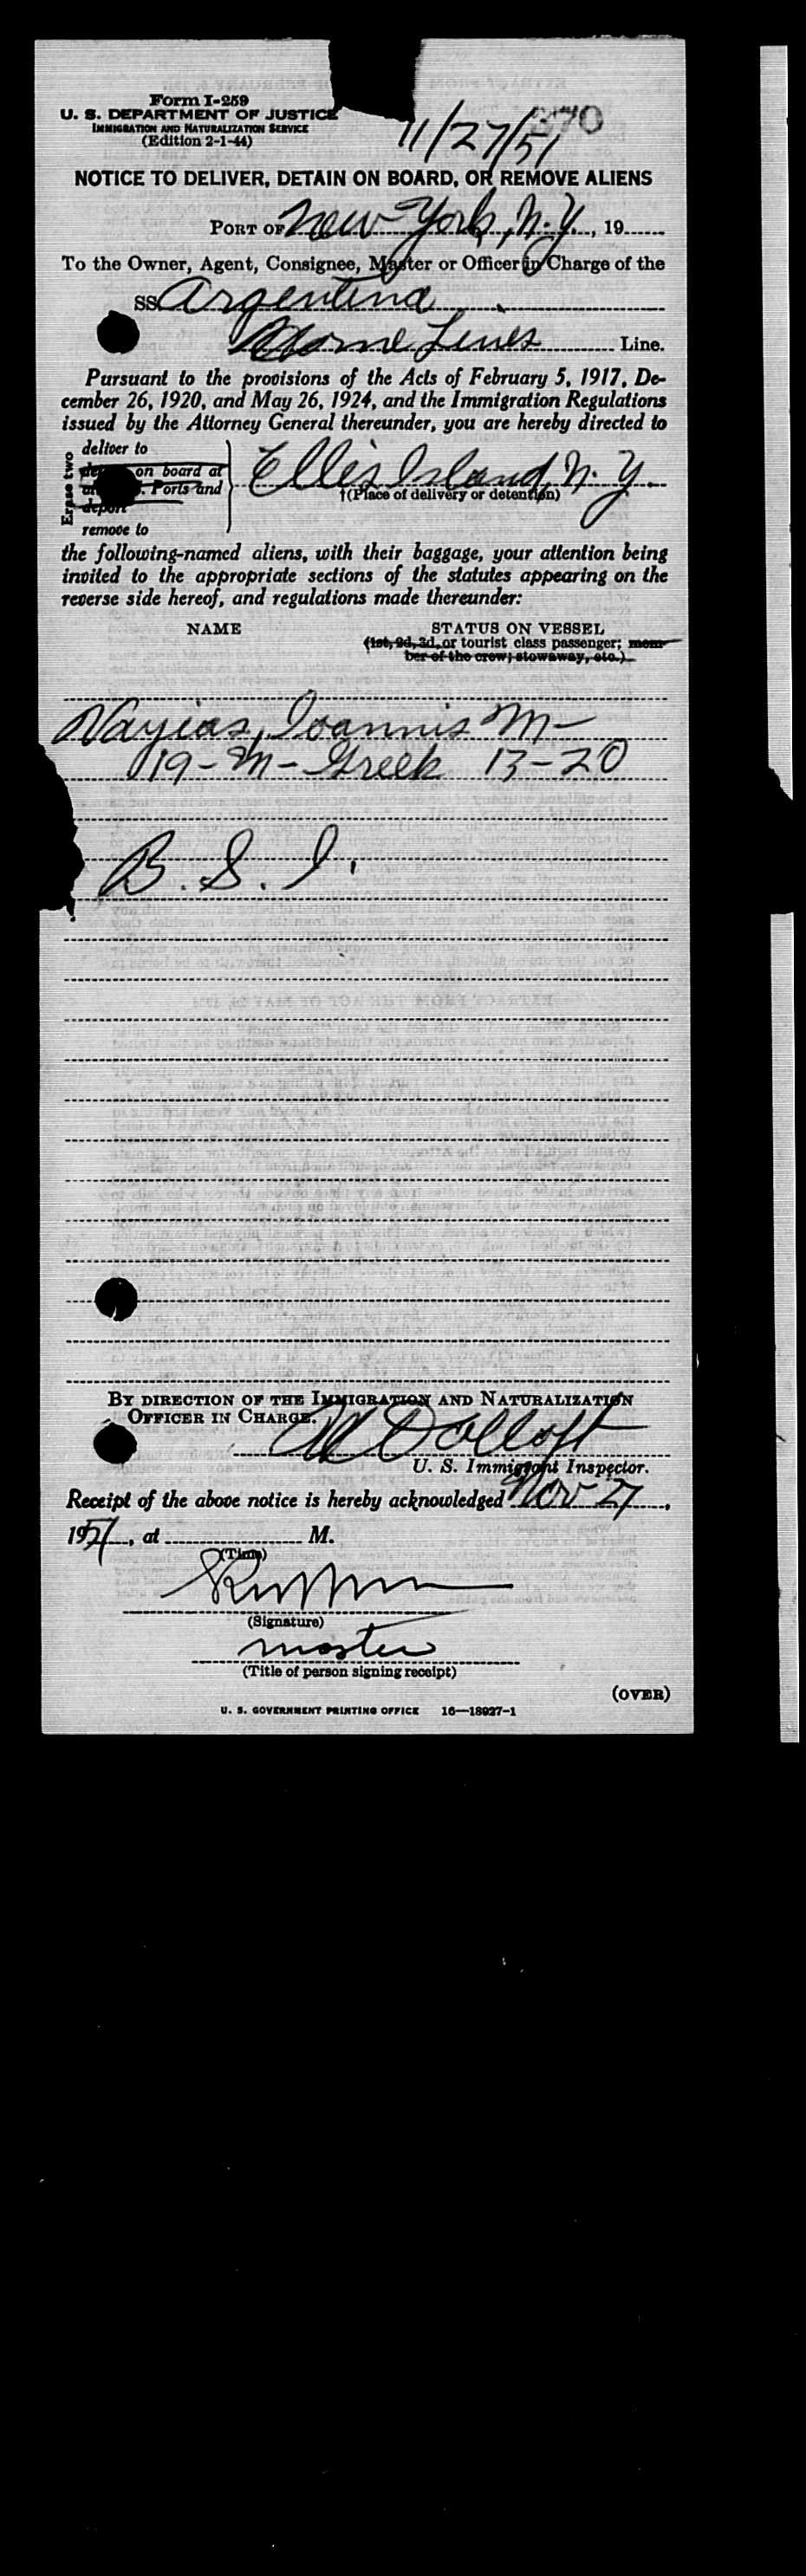 Form I-259
U. S. DEPARTMENT OF JUSTICE
IMMIGRATION AND NATURALIZATION SERVICE
(Edition 2-1-44)
370
11/27/51
NOTICE TO DELIVER, DETAIN ON BOARD, OR REMOVE ALIENS
PORT OF New York, N.Y., 19
To the Owner, Agent, Consignee, Master or Officer in Charge of the
SS Argentina
Home Lines Line.
Pursuant to the provisions of the Acts of February 5, 1917, De-
cember 26, 1920, and May 26, 1924, and the Immigration Regulations
issued by the Attorney General thereunder, you are hereby directed to
Erase two
deliver to
on board at
Ports and
deport
remove to
Ellis Island, N. Y.
†(Place of delivery or detention)
the following-named aliens, with their baggage, your attention being
invited to the appropriate sections of the statutes appearing on the
reverse side hereof, and regulations made thereunder:
NAME STATUS ON VESSEL
(1st, 2d, 3d, or tourist class passenger; mem-
ber of the crew; stowaway, etc.)
Vayias, Ioannis M-
19-M-Greek 13-20
B. S. I.
BY DIRECTION OF THE IMMIGRATION AND NATURALIZATION
OFFICER IN CHARGE.
U. S. Immigrant Inspector.
Receipt of the above notice is hereby acknowledged Nov 27,
1951, at M.
(Time)
(Signature)
master
(Title of person signing receipt)
(OVER)
U. S. GOVERNMENT PRINTING OFFICE 16—18927-1